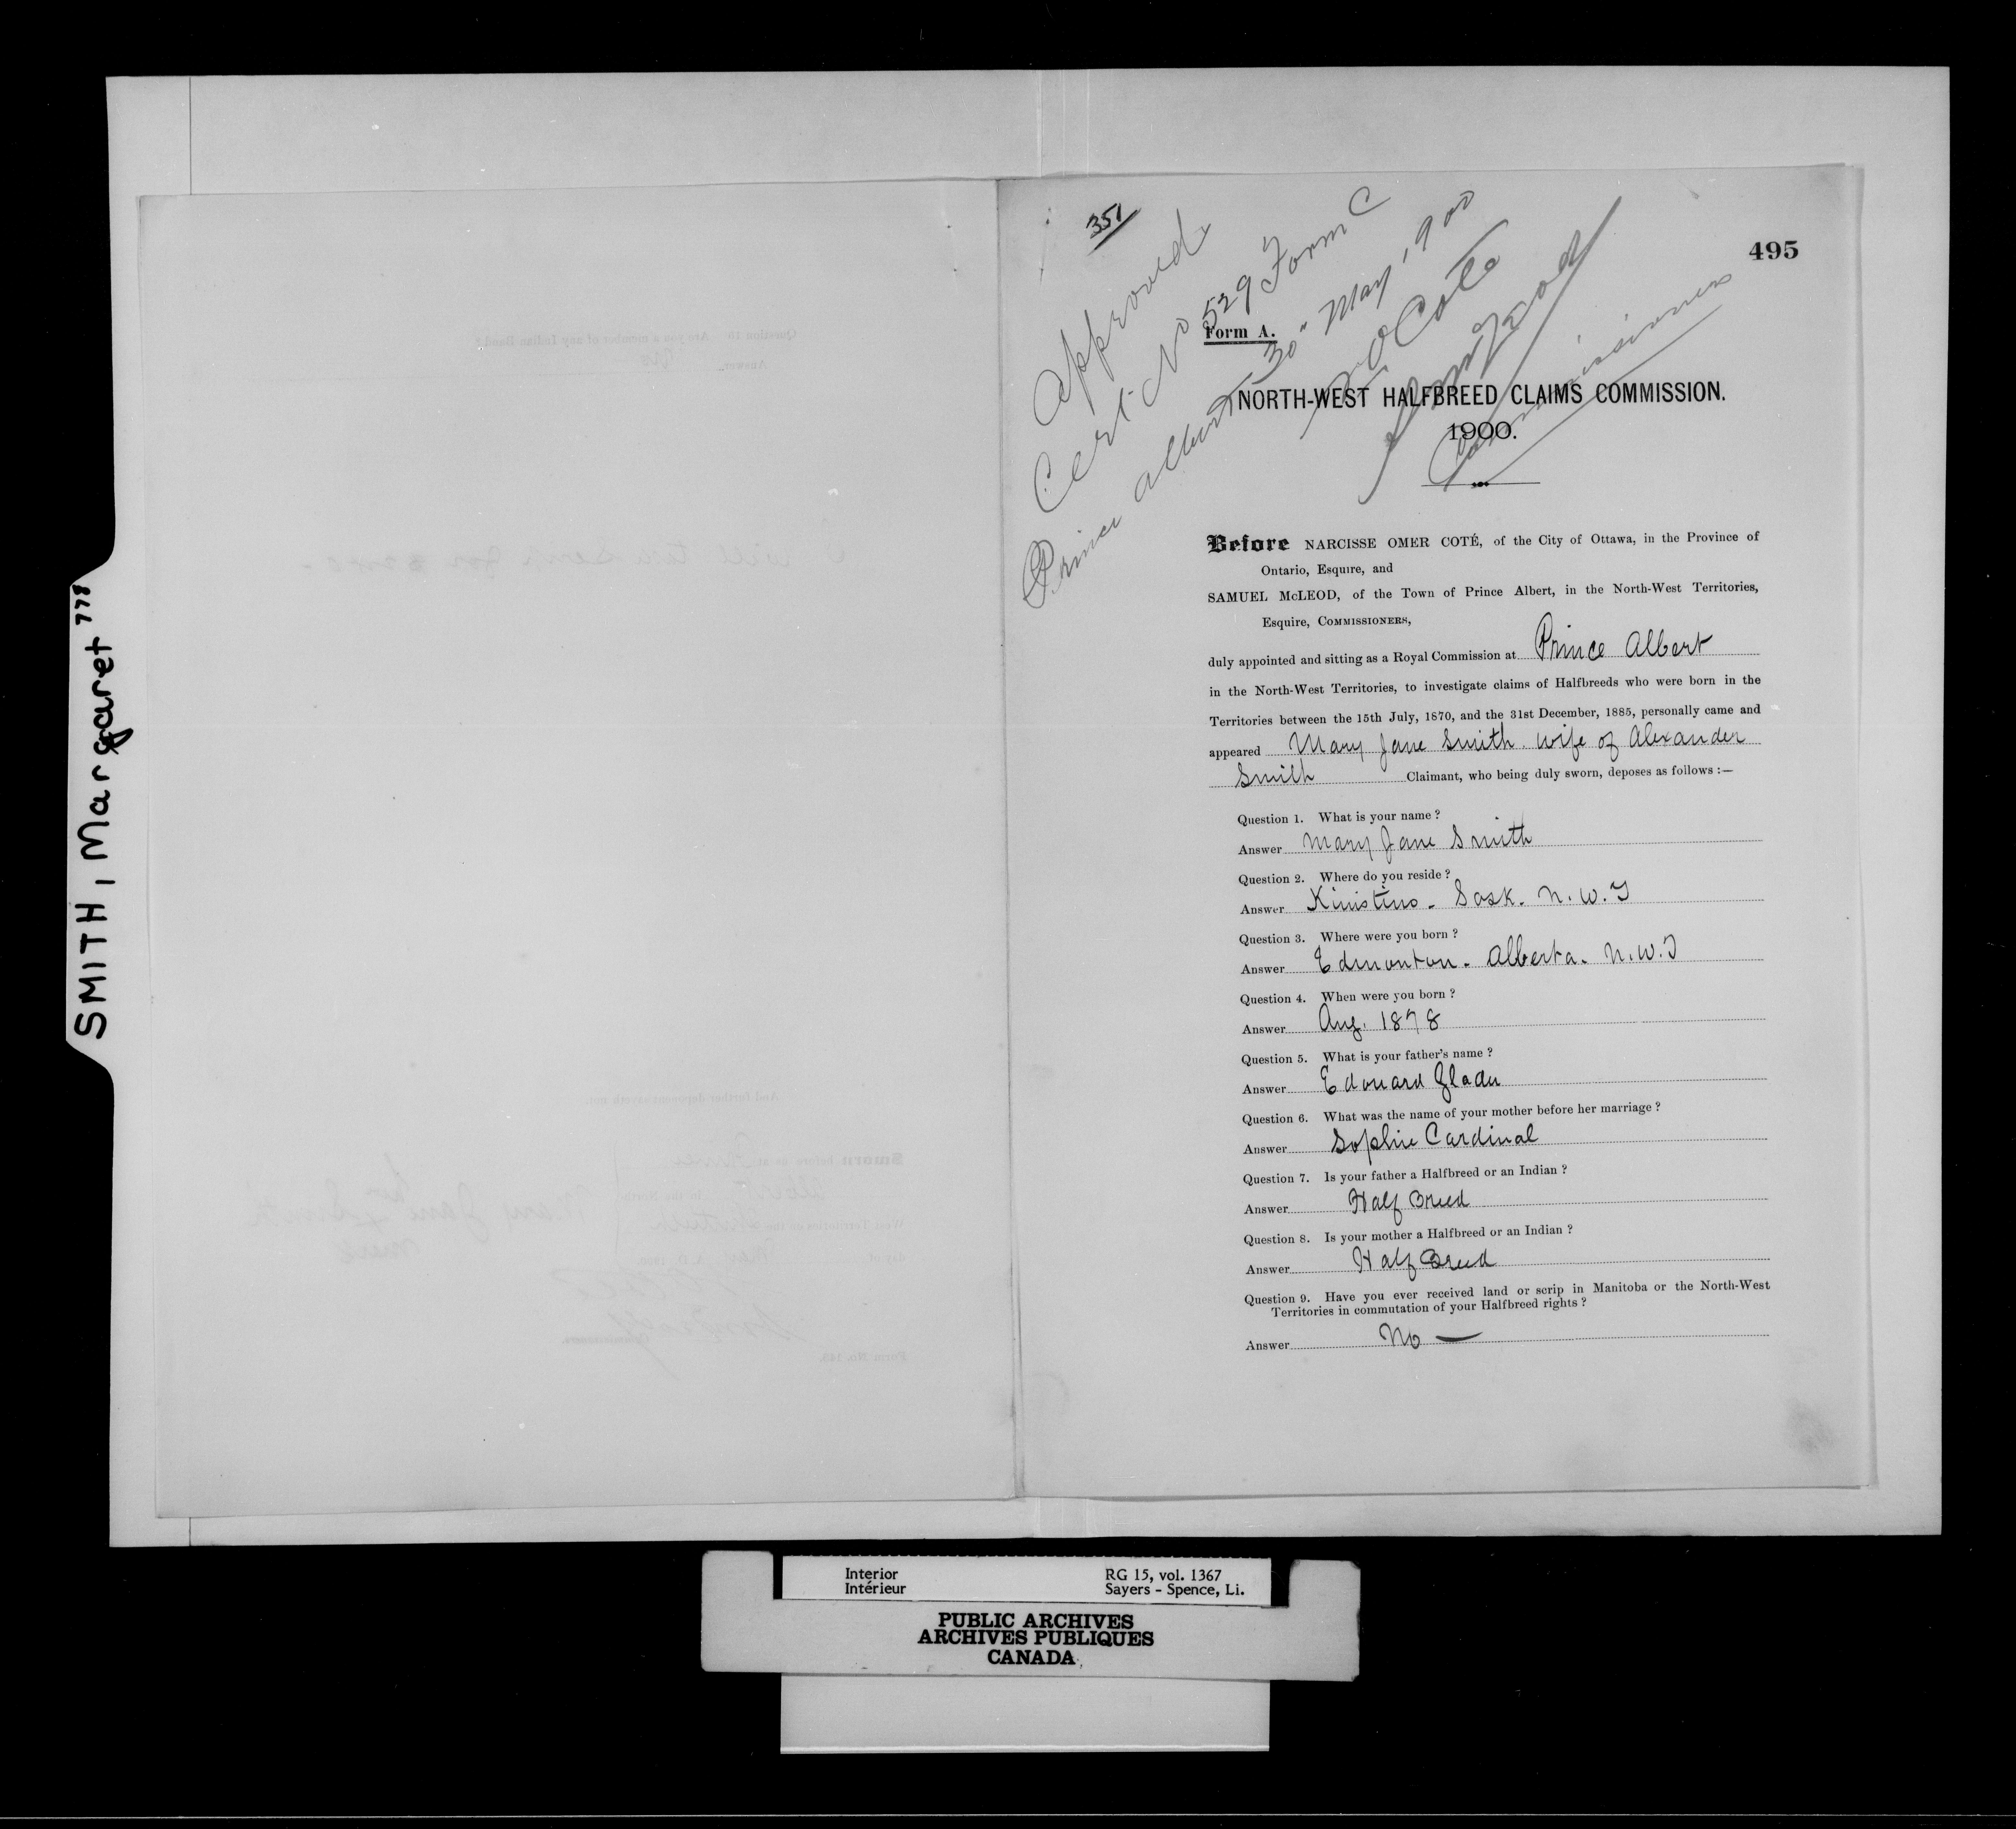 SMITH, Margaret 778
351
495
Approved
Cert No 529 Form C
Prince Albert 30" May, 1900
N O Coté
Commissioners
Form A.
NORTH-WEST HALFBREED CLAIMS COMMISSION.
1900.
Before NARCISSE OMER COTÉ, of the City of Ottawa, in the Province of
Ontario, Esquire, and
SAMUEL McLEOD, of the Town of Prince Albert, in the North-West Territories,
Esquire, COMMISSIONERS,
duly appointed and sitting as a Royal Commission at Prince Albert
in the North-West Territories, to investigate claims of Halfbreeds who were born in the
Territories between the 15th July, 1870, and the 31st December, 1885, personally came and
appeared Mary Jane Smith wife of Alexander
Smith Claimant, who being duly sworn, deposes as follows :—
Question 1. What is your name ?
Answer Mary Jane Smith
Question 2. Where do you reside ?
Answer Kinistino - Sask. N. W. T
Question 3. Where were you born ?
Answer Edmonton - Alberta. N. W. T
Question 4. When were you born ?
Answer Aug. 1878
Question 5. What is your father's name ?
Answer Edouard Gladu
Question 6. What was the name of your mother before her marriage ?
Answer Sophie Cardinal
Question 7. Is your father a Halfbreed or an Indian ?
Answer Half Breed
Question 8. Is your mother a Halfbreed or an Indian ?
Answer Half Breed
Question 9. Have you ever received land or scrip in Manitoba or the North-West
Territories in commutation of your Halfbreed rights ?
Answer No —
Interior
Intérieur
RG 15, vol. 1367
Sayers - Spence, Li.
PUBLIC ARCHIVES
ARCHIVES PUBLIQUES
CANADA